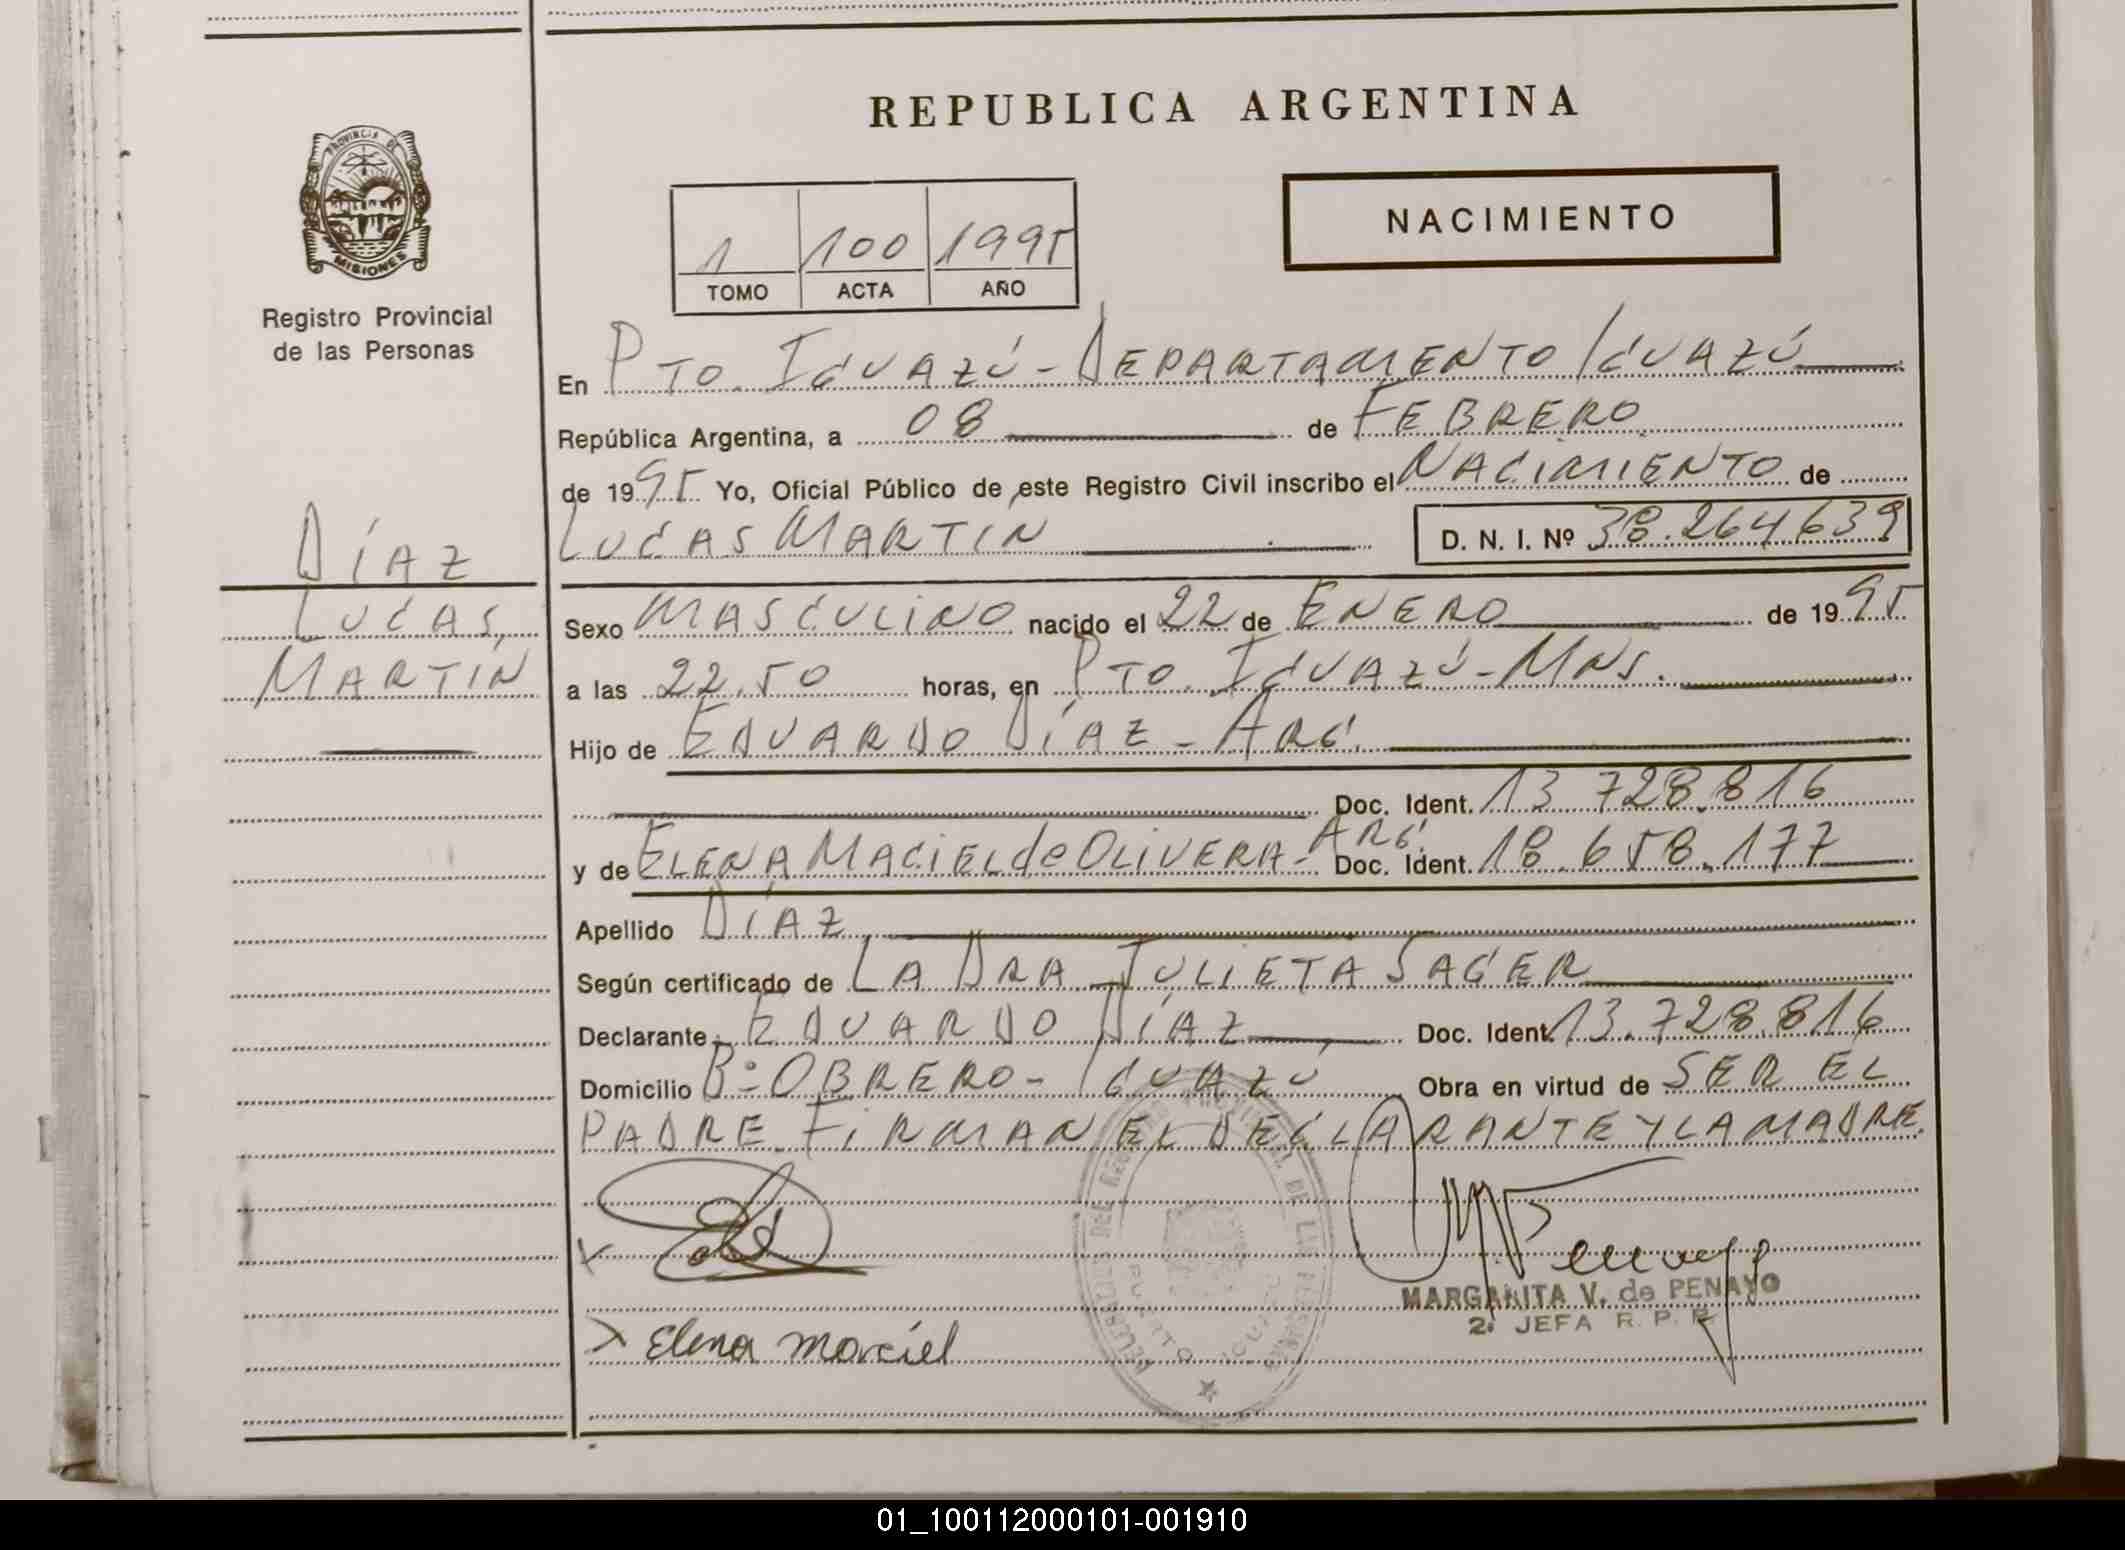 REPUBLICA ARGENTINA
PROVINCIA DE
MISIONES
Registro Provincial
de las Personas
1 100 1995
TOMO ACTA AÑO
NACIMIENTO
En PTO. IGUAZÚ - DEPARTAMENTO IGUAZÚ
República Argentina, a 08 de FEBRERO
de 1995 Yo, Oficial Público de este Registro Civil inscribo el NACIMIENTO de
LUCAS MARTIN D. N. I. Nº 38.264639
DÍAZ
LUCAS,
MARTIN
Sexo MASCULINO nacido el 22 de ENERO de 1995
a las 22.50 horas, en PTO. IGUAZÚ - MNS.
Hijo de EDUARDO DÍAZ - ARG.
Doc. Ident. 13 728.816
y de ELENA MACIEL de OLIVERA - ARG. Doc. Ident. 18.658.177
Apellido DÍAZ
Según certificado de LA DRA JULIETA SAGER
Declarante EDUARDO DÍAZ Doc. Ident. 13.728.816
Domicilio Bº OBRERO - IGUAZÚ Obra en virtud de SER EL
PADRE. FIRMAN EL DECLARANTE Y LA MADRE.
Penayo
MARGARITA V. de PENAYO
2ª JEFA R. P. P.
x Elena Marciel
PUERTO IGUAZU
01_100112000101-001910